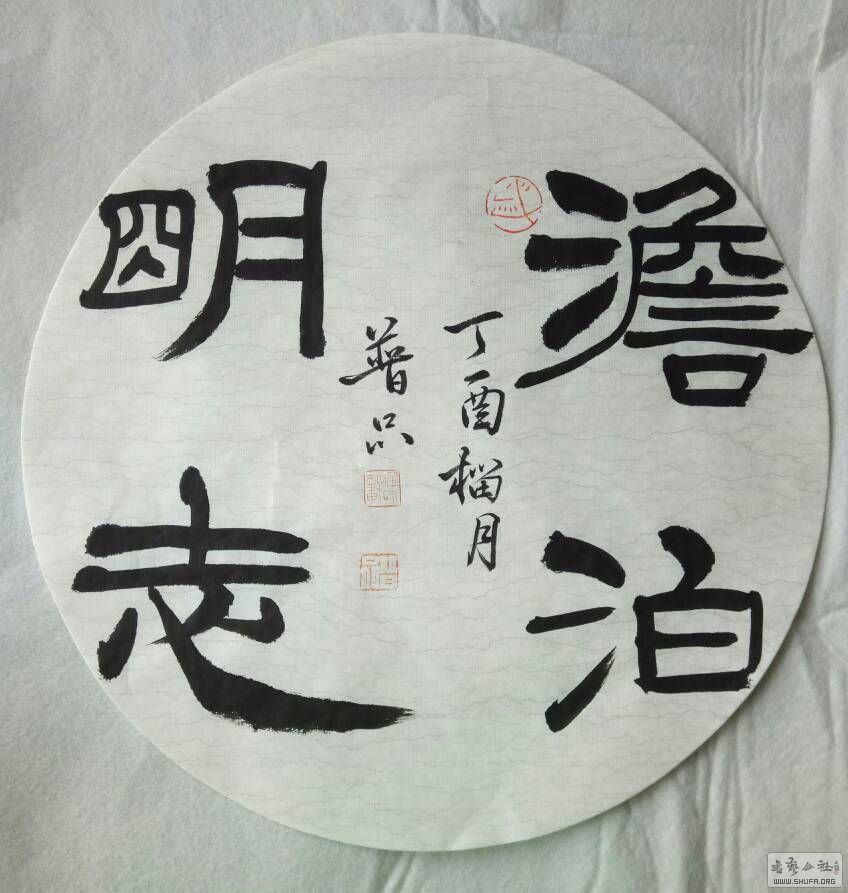 澹泊
明志
丁酉榴月
普品
書藝公社
WWW.SHUFA.ORG